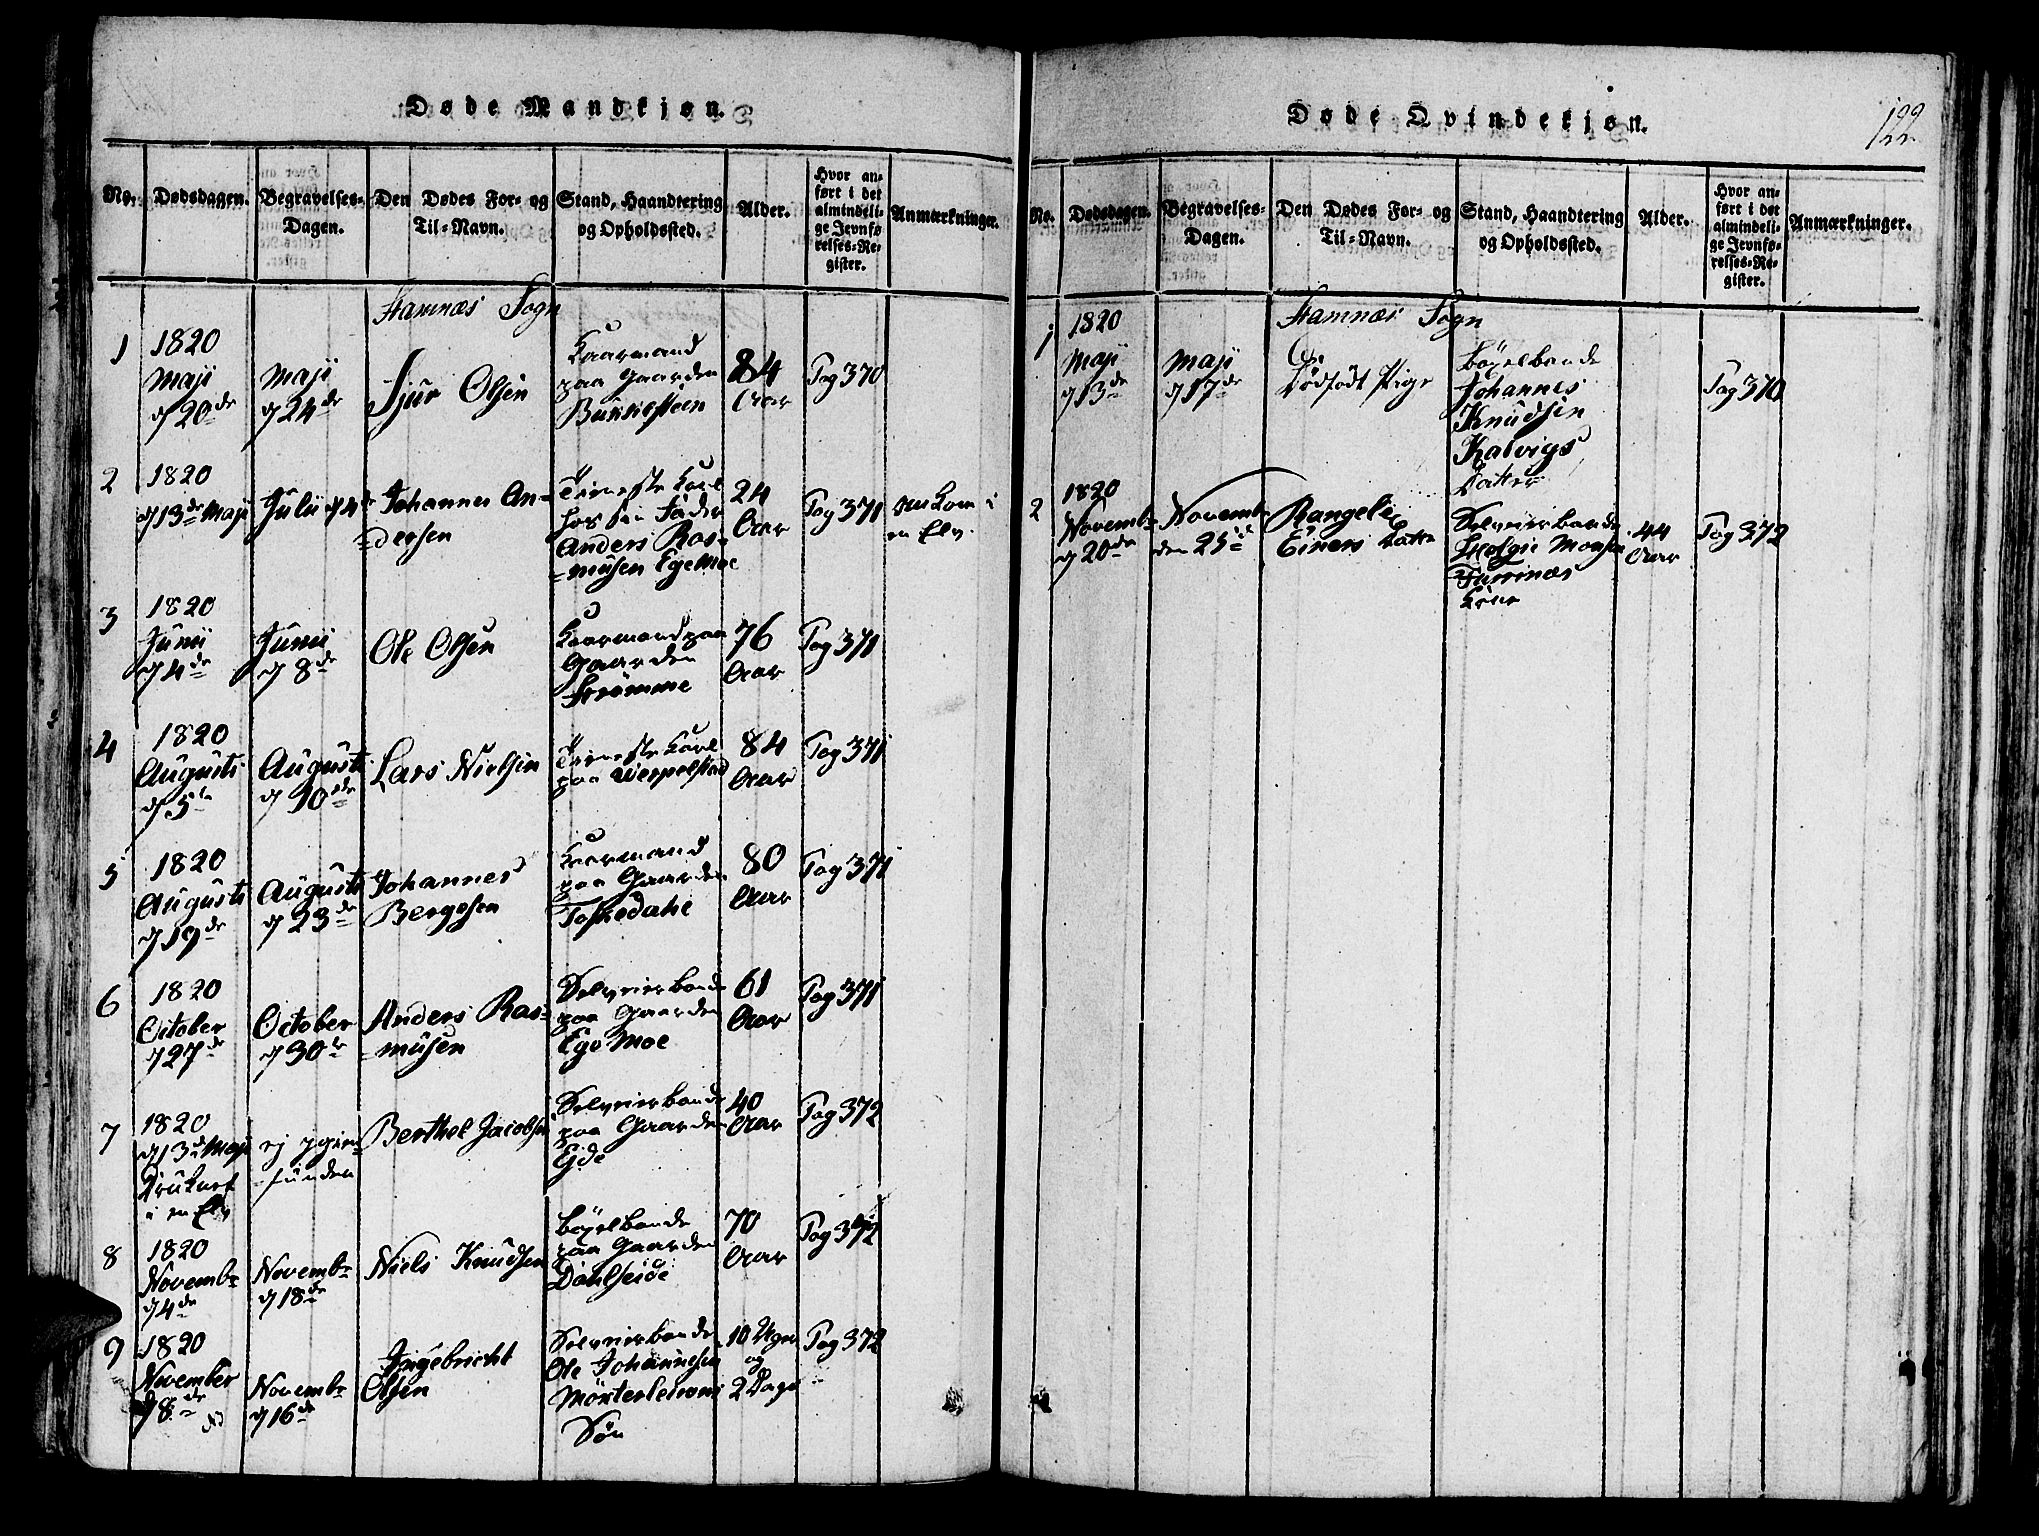 Døde Mandkjøn.
No.
Dødsdagen.
Begravelses-
Dagen.
Den Dødes For- og
Til-Navn.
Stand, Haandtering
og Opholdssted.
Alder.
Hvor an-
ført i det
almindeli-
ge Jevnfø-
relses-Re-
gister.
Anmærkninger.
Hamnæs Sogn
1
1820
Maji
d 20de
Maji
d 24de
Sjur Olsen
Kaarmand
paa Gaarden
Bukkesteen
84
Aar
Pag 370
2
1820
d 13de Maji
Julii d 4de
Johannes An-
-dersen
Tieneste Karl
hos sin Fader
Anders Ras-
-musen Egemoe
24
Aar
Pag 371
omkom i
en Elv.
3
1820
Junii
d 4de
Junii
d 8de
Ole Olsen
Kaarmand paa
Gaarden
Strømme
76
Aar
Pag 371
4
1820
Augusti
d 5te
Augusti
d 10de
Lars Nielsen
Tieneste Karl
paa
84
Aar
Pag 371
5
1820
Augusti
d 19de
Augusti
d 23de
Johannes
Bergesen
Kaarmand
paa Gaarden
Toskedahl
80
Aar
Pag 371
6
1820
October
d 27de
October
d 30te
Anders Ras-
-musen
Selveierbonde
paa Gaarden
Ege Moe
61
Aar
Pag 371
7
1820
d 13de Maji
Druknet
i en Elv
ej igien-
-funden
Berthel Jacobsen
Selveierbonde
paa Gaarden
Ejde
40
Aar
Pag 372
8
1820
Novembr
d 4de
Novembr
d 18de
Niels Knudsen
Böxelbonde
paa Gaarden
Dahlseide
70
Aar
Pag 372
9
1820
November
d 8de
Novembr
d 16de
Ingebricht
Olsen
Selveierbonde
Ole Johannesen
Søn
10 Uger
og
2 Dage
Pag 372
Døde Qvindekjøn.
122
No.
Dødsdagen.
Begravelses-
Dagen.
Den Dødes For- og
Til-Navn.
Stand, Haandtering
og Opholdssted.
Alder.
Hvor an-
ført i det
almindeli-
ge Jevnfø-
relses-Re-
gister.
Anmærkninger.
Hamnæs Sogn
1
1820
Maji
d 13de
Maji
d 17de
En
Dødfødt Pige
Böxelbonde
Johannes
Knudsen
Kalvigs
Datter
Pag 370
2
1820
Novembr
d 20de
Novembr
den 25de
Rangele
Einers Datter
Selveierbonde
Helgie Monsen
Furrenæs
Kone
44
Aar
Pag 372